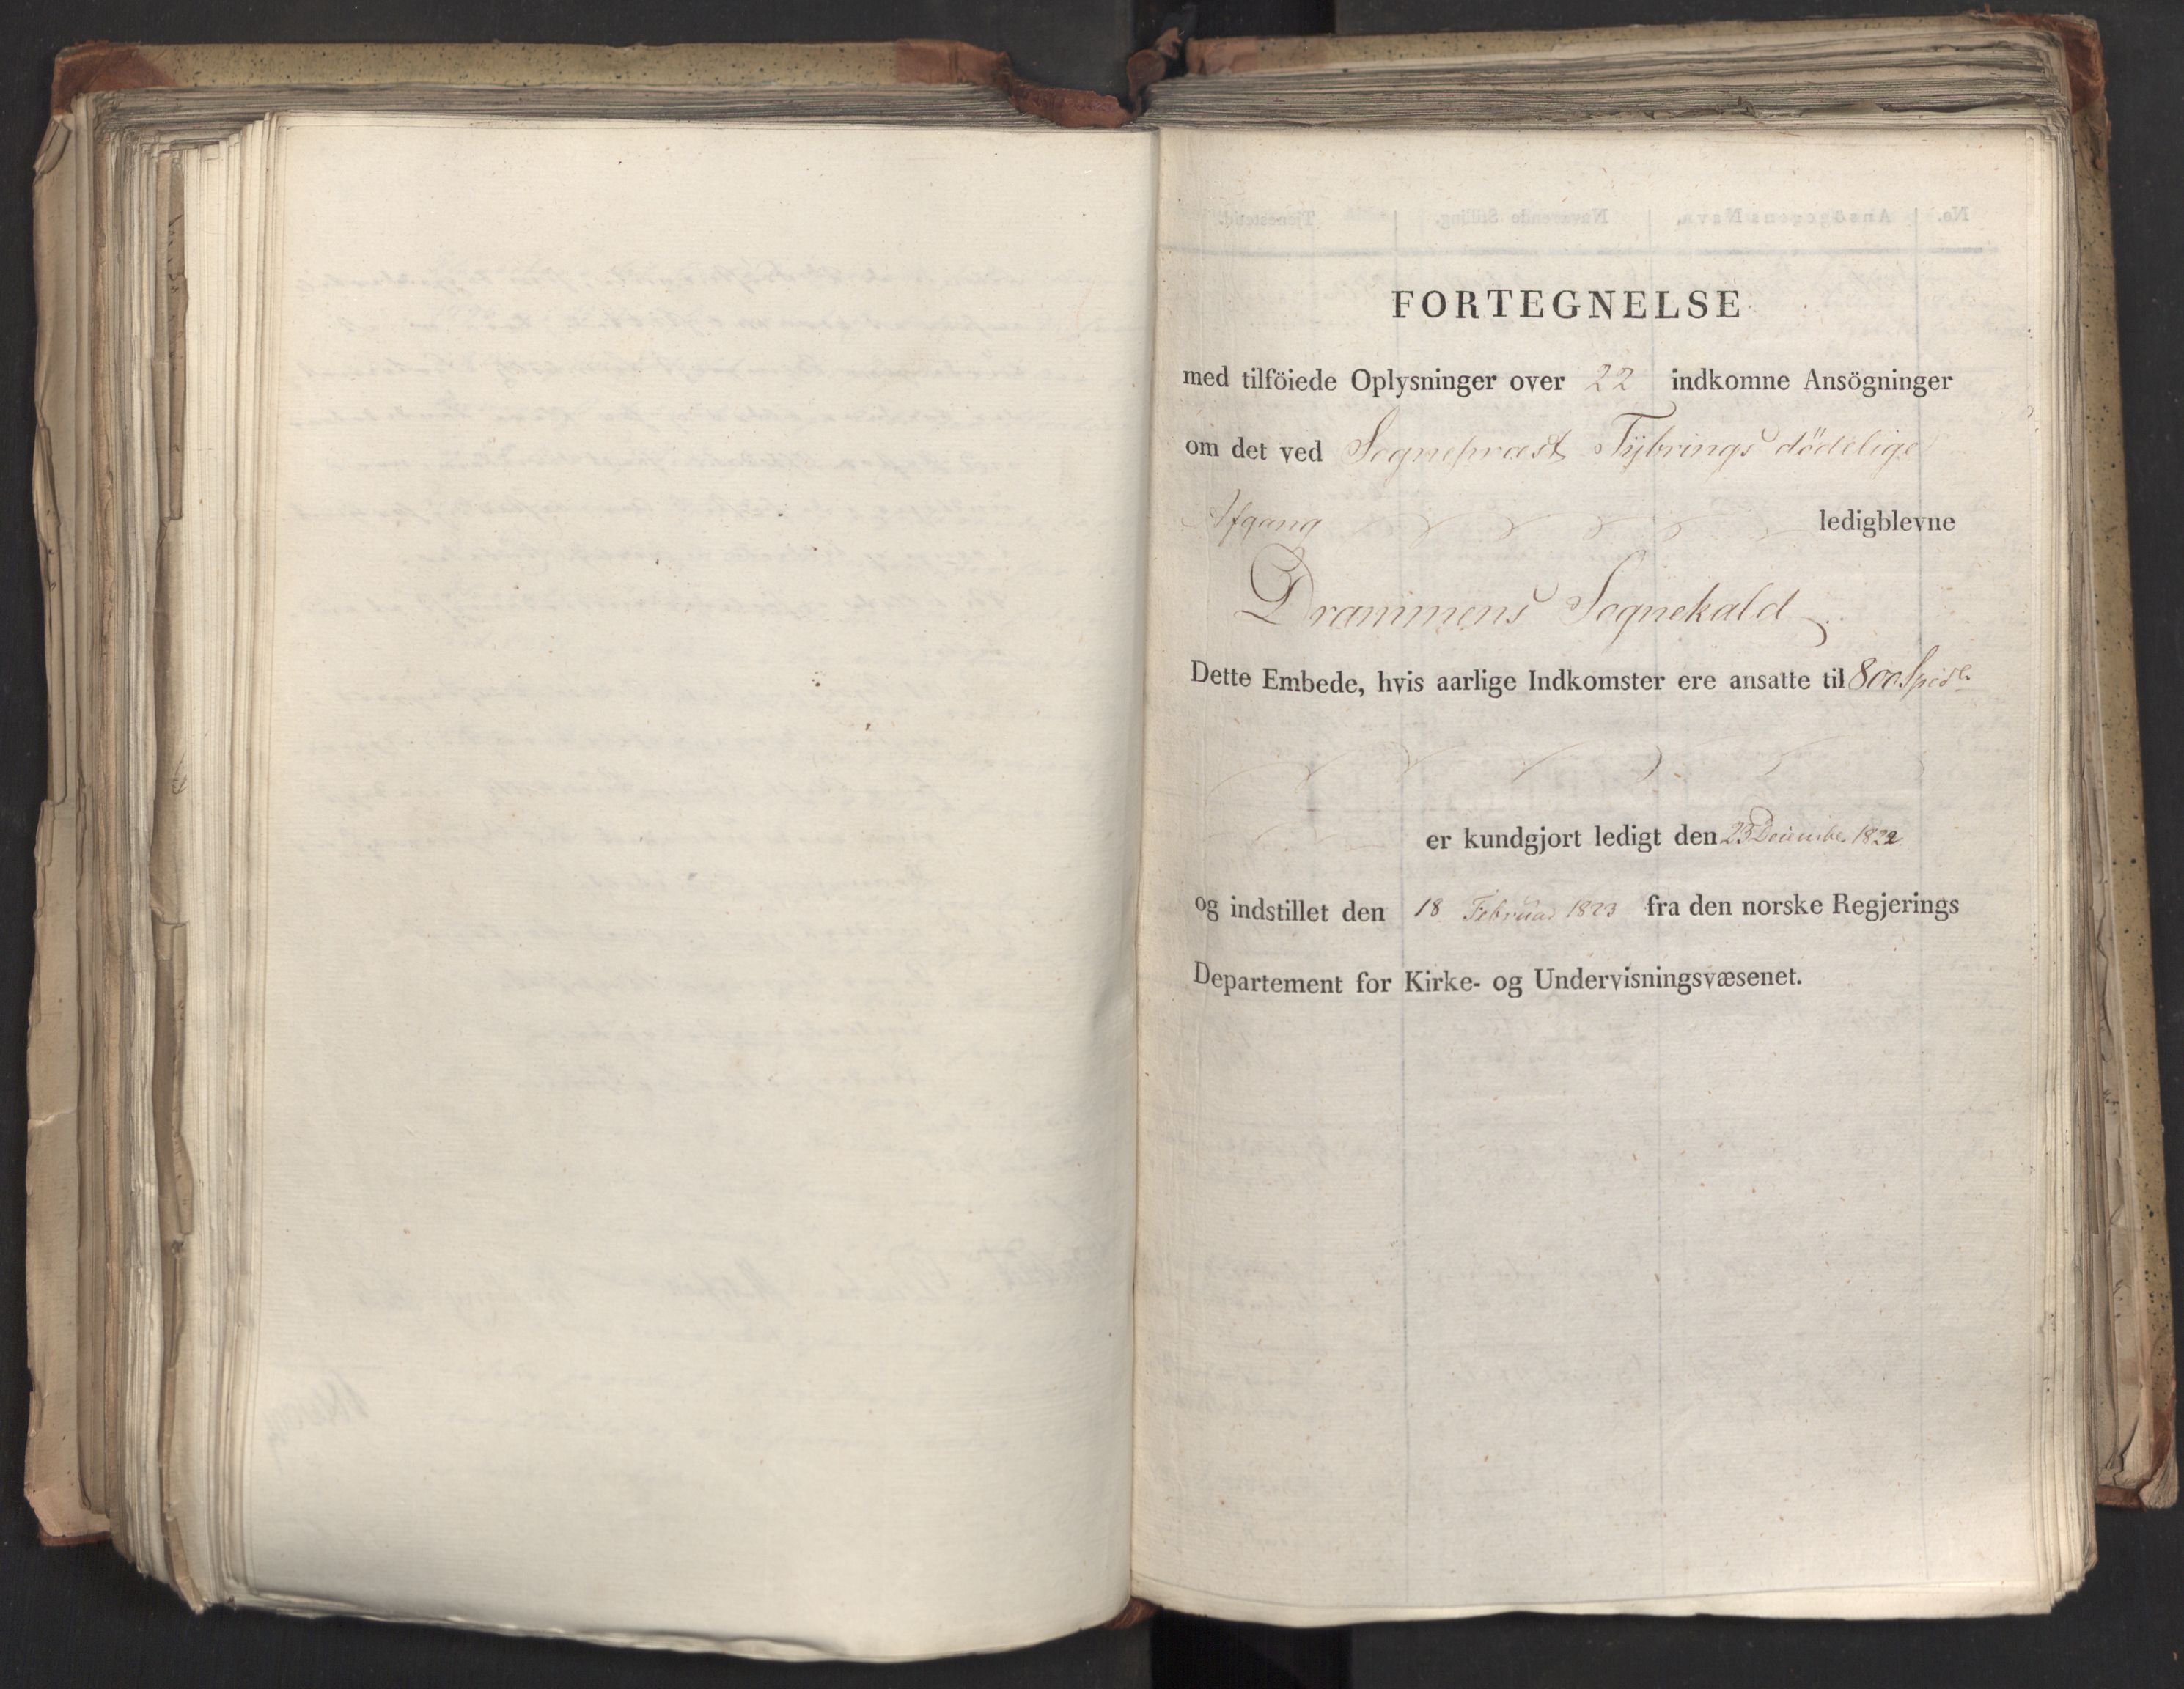 FORTEGNELSE
med tilföiede Oplysninger over 22 indkomne Ansögninger
om det ved Sognepræst Tybrings dödelige
Afgang ledigblevne
Drammens Sognekald
Dette Embede, hvis aarlige Indkomster ere ansatte til 800 Spdl.
er kundgjort ledigt den 23 December 1822
og indstillet den 18 Februar 1823 fra den norske Regjerings
Departement for Kirke- og Undervisningsvæsenet.